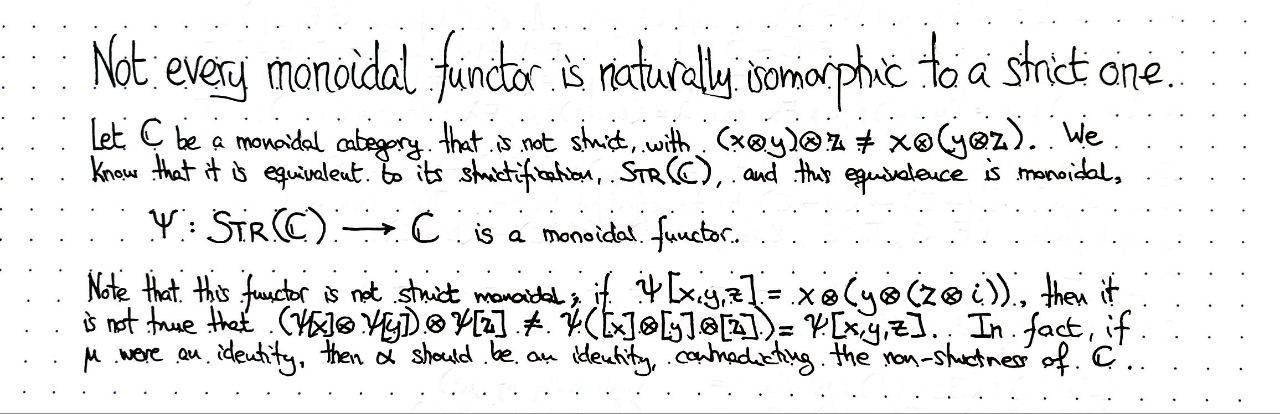 Not every monoidal functor is naturally isomorphic to a strict one.
Let ℂ be a monoidal category that is not strict, with (x⊗y)⊗z ≠ x⊗(y⊗z). We
know that it is equivalent to its strictification, STR(ℂ), and this equivalence is monoidal,
Ψ : STR(ℂ) ⟶ ℂ is a monoidal functor.
Note that this functor is not strict monoidal; if Ψ[x,y,z] = x⊗(y⊗(z⊗i)), then it
is not true that (Ψ[x]⊗Ψ[y])⊗Ψ[z] ≠ Ψ([x]⊗[y]⊗[z]) = Ψ[x,y,z]. In fact, if
μ were an identity, then α should be an identity, contradicting the non-strictness of ℂ.